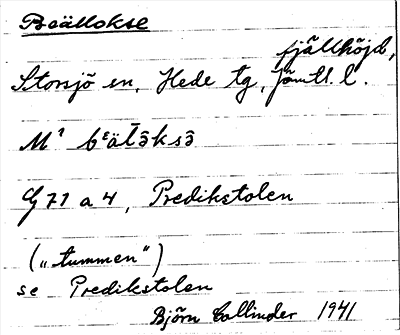 Beällokse
fjällhöjd,
Storsjö sn, Hede tg, Jämtl. l.
M¹ bᵉäl̄ə̂ksə̂
G 71 a 4, Predikstolen
("tummen")
se Predikstolen
Björn Collinder 1941